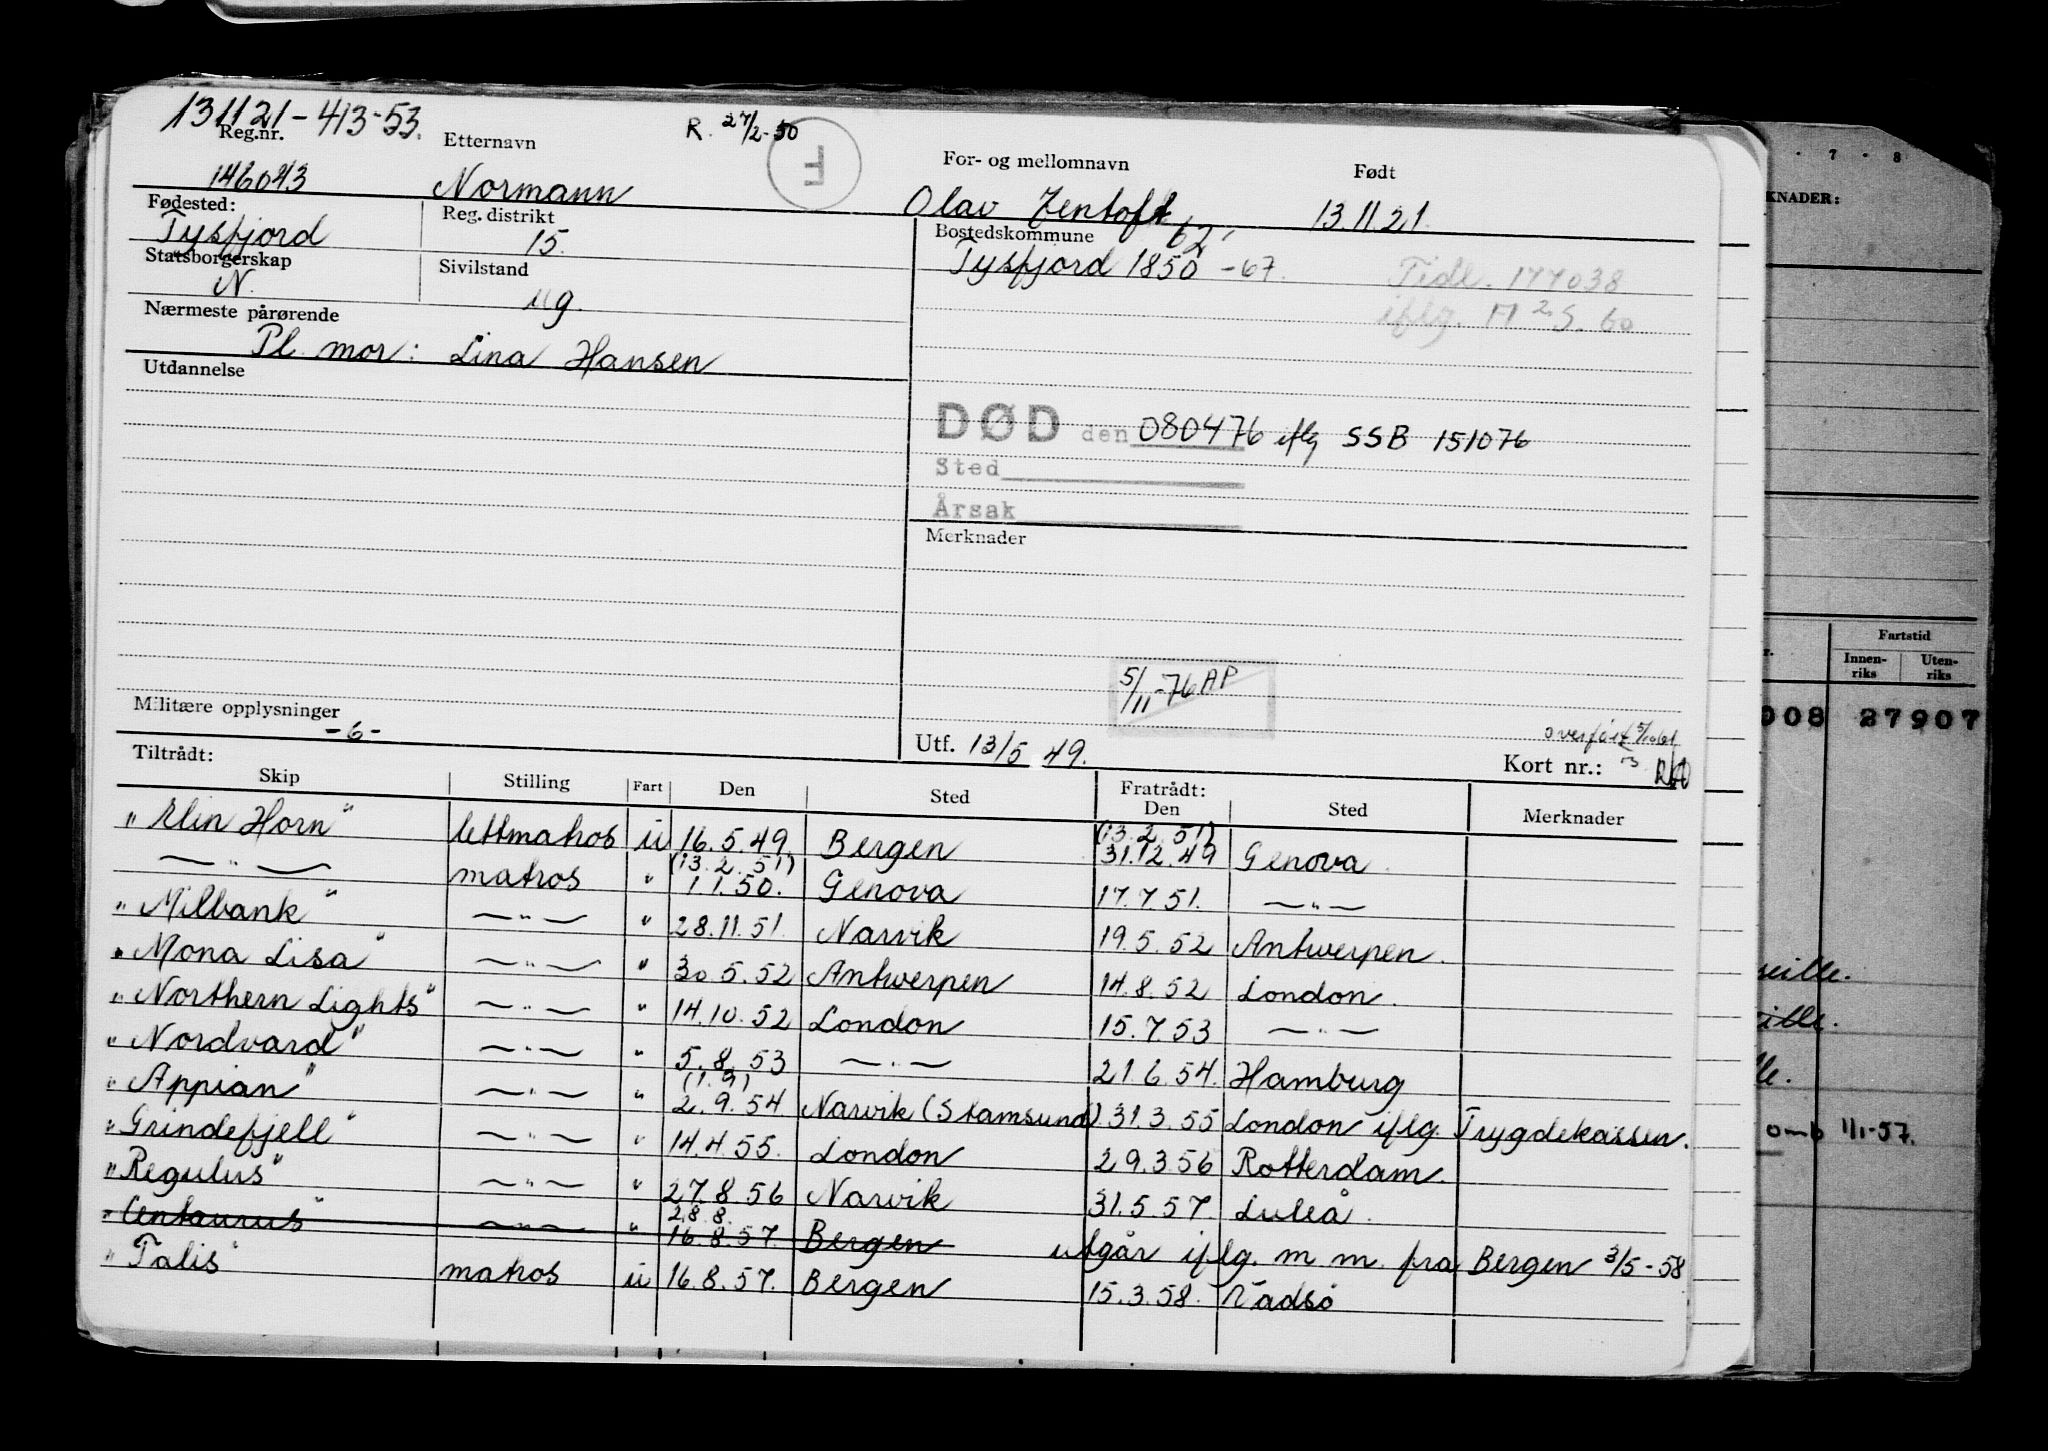 131121-413-53. R. 27/2-50 F
Reg.nr. Etternavn For- og mellomnavn Født
146043 Normann Olav Zentoft 13.11.21.
Fødested: Reg. distrikt Bostedskommune 62,
Tysfjord 15. Tysfjord 1850 -67.
Statsborgerskap Sivilstand Tidl. 177038
N. ug. iflg. M 2 S. 60
Nærmeste pårørende
Pl. mor: Lina Hansen
Utdannelse
DØD den 080476 iflg SSB 151076
Sted
Årsak
Merknader
5/11-76 AP
Militære opplysninger
-6-
Utf. 13/5 49. overført
Kort nr.:
Tiltrådt: Fratrådt:
Skip Stilling Fart Den Sted Den Sted Merknader
"Elin Horn" lettmatros u 16.5.49 Bergen (13.2.51) 31.12.49 Genova.
— " — matros " (13.2.51) 1.1.50. Genova 17.7.51. — " —
"Milbank" — " — " 28.11.51. Narvik 19.5.52 Antwerpen.
"Mona Lisa" — " — " 30.5.52 Antwerpen 14.8.52 London.
"Northern Lights" — " — " 14.10.52 London 15.7.53 — " —
"Nordvard" — " — " 5.8.53 — " — 21.6.54. Hamburg
"Appian" — " — " (1.9) 2.9.54 Narvik (Stamsund) 31.3.55 London iflg. Trygdekassen.
"Grindefjell" — " — " 14.4.55. London 29.3.56 Rotterdam.
"Regulus" — " — " 27.8.56 Narvik 31.5.57. Luleå.
"Centaurus" — " — " 28.8. 16.8.57. Bergen utgår iflg. m.m. fra Bergen 3/5-58
"Talis" matros u 16.8.57. Bergen 15.3.58. Vadsø
7 · 8
KNADER:
Fartstid
r. Innen-riks Uten-riks
008 27907
eille.
eille.
lle.
omb 1/1-57.